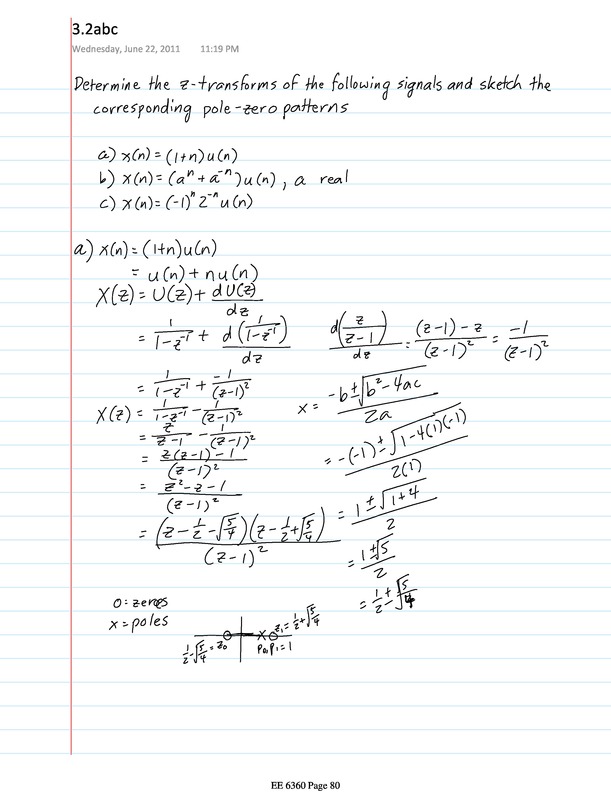 3.2abc
Wednesday, June 22, 2011 11:19 PM
Determine the z-transforms of the following signals and sketch the
corresponding pole-zero patterns
a) x(n) = (1+n)u(n)
b) x(n) = (aⁿ + a⁻ⁿ)u(n), a real
c) x(n) = (-1)ⁿ 2⁻ⁿ u(n)
a) x(n) = (1+n)u(n)
= u(n) + nu(n)
X(z) = U(z) + dU(z)/dz
= 1/(1-z⁻¹) + d(1/(1-z⁻¹))/dz
d(z/(z-1))/dz = ((z-1)-z)/(z-1)² = -1/(z-1)²
= 1/(1-z⁻¹) + -1/(z-1)²
X(z) = 1/(1-z⁻¹) - 1/(z-1)²
= z/(z-1) - 1/(z-1)²
= (z(z-1)-1)/(z-1)²
= (z²-z-1)/(z-1)²
= (z-1/2-√(5/4))(z-1/2+√(5/4))/(z-1)²
x = (-b±√(b²-4ac))/2a
= (-(-1)±√(1-4(1)(-1)))/2(1)
= (1±√(1+4))/2
= (1±√5)/2
= 1/2 ± √(5/4)
O = zeroes
x = poles
1/2-√(5/4) = z₀
z₁ = 1/2+√(5/4)
p₀,p₁ = 1
EE 6360 Page 80